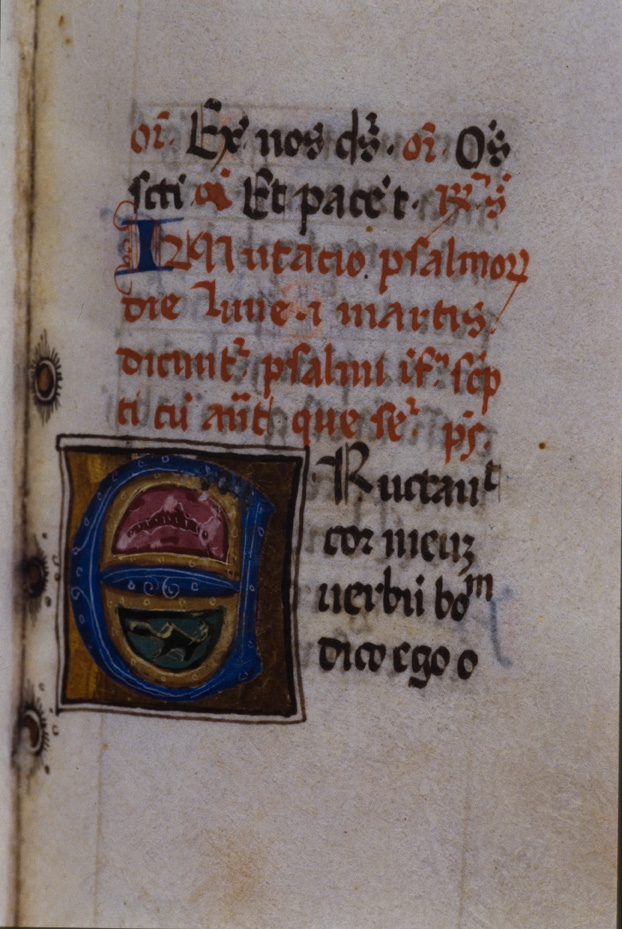 or̄. Ex nos q̄s. or̄. Os̄
sc̄ti or̄ Et pace t.
INMutacio psalmoꝝ
die lune ⁊ martis.
dicunt᷑ psalmi if᷑ sc̄p
ti cū an̄t que se᷑ ps̄.
ERuctauᵗ
cor meuꝫ
uerbū boᵐ
dico ego o